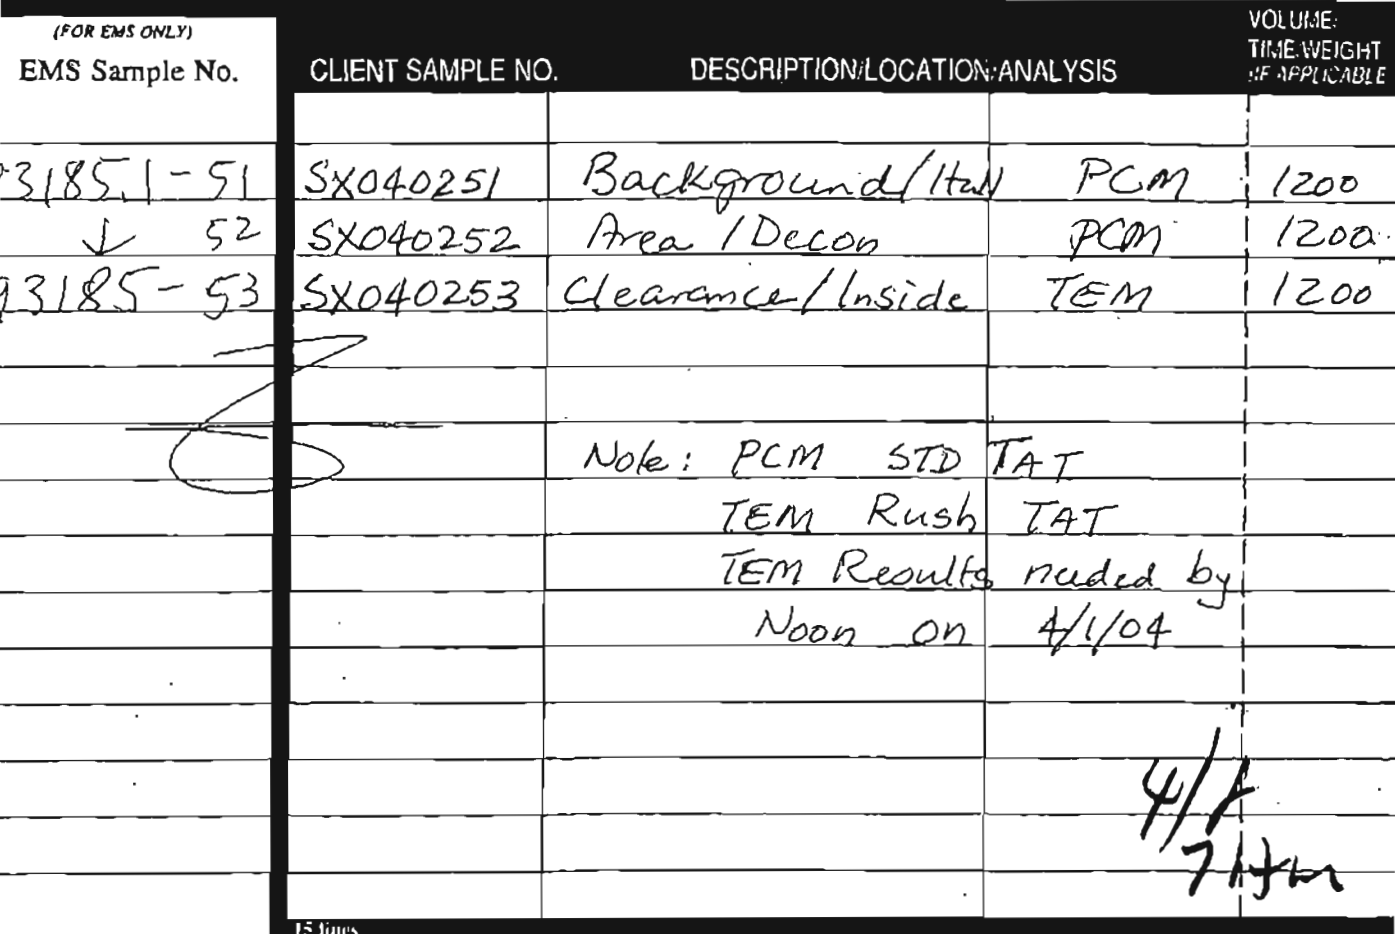 (FOR EMS ONLY)
EMS Sample No. CLIENT SAMPLE NO. DESCRIPTION/LOCATION/ANALYSIS
VOLUME/
TIME/WEIGHT
(IF APPLICABLE
93185.1-51 SX040251 Background/Hall PCM 1200
↓ 52 SX040252 Area / Decon PCM 1200
93185-53 SX040253 Clearance/Inside TEM 1200
Note: PCM STD TAT
TEM Rush TAT
TEM Results needed by
Noon on 4/1/04
4/1
15 lines